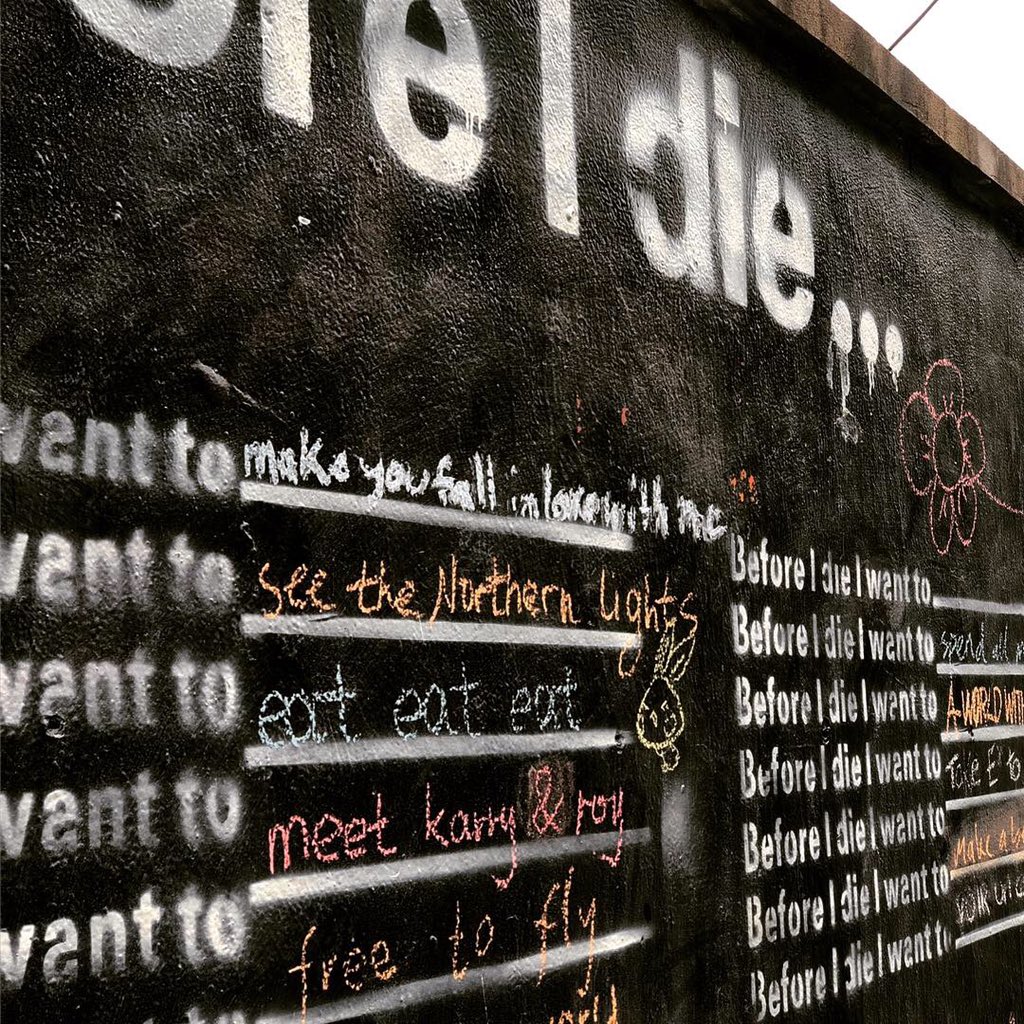 I die...
want to make you fall in love with me
want to see the Northern lights
want to eat eat eat
want to meet karry & roy
want to free to fly
Before I die I want to
Before I die I want to spend all
Before I die I want to A WORLD WITH
Before I die I want to Take E to
Before I die I want to Make a
Before I die I want to
Before I die I want to